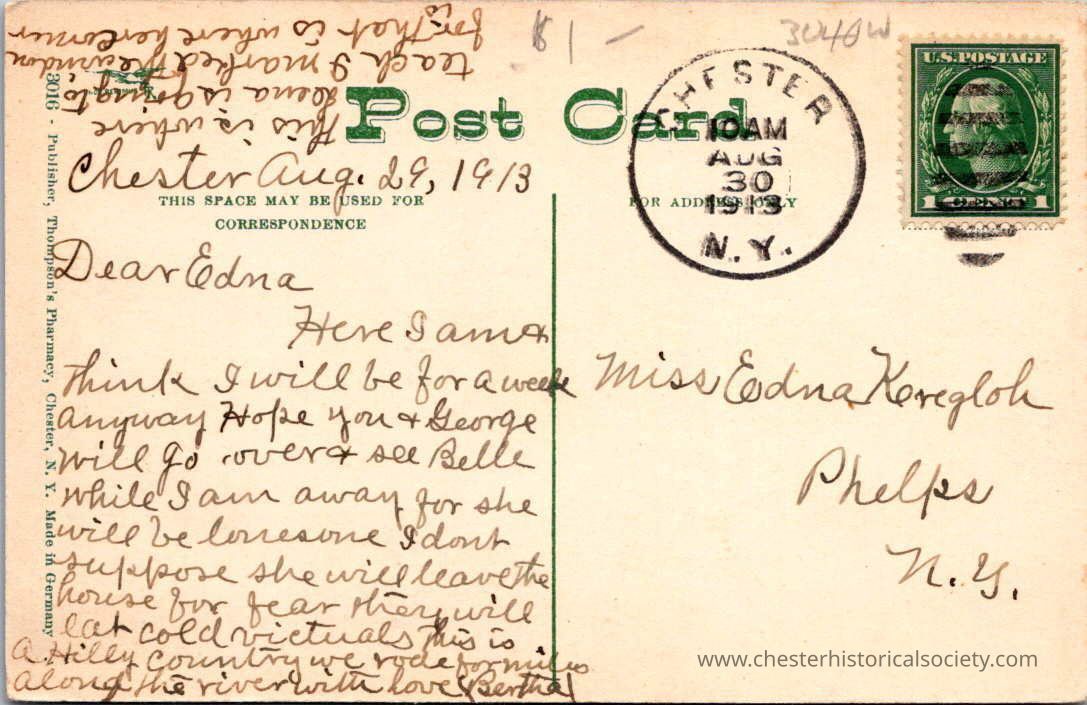 $1 –
3040W
This is where
Leena is going to
teach I marked the window
for that is where her corner
is
Post Card
CHESTER
10AM
AUG
30
1913
N.Y.
U.S. POSTAGE
1 CENT 1
Chester Aug. 29, 1913
THIS SPACE MAY BE USED FOR
CORRESPONDENCE
FOR ADDRESS ONLY
3016 - Publisher, Thompson's Pharmacy, Chester, N. Y. Made in Germany
Dear Edna
Here I am &
think I will be for a week
anyway Hope you & George
will go over & see Belle
while I am away for she
will be lonesome I dont
suppose she will leave the
house for fear they will
eat cold victuals This is
a Hilly country we rode for miles
along the river with love Bertha
Miss Edna Keregloh
Phelps
N.Y.
www.chesterhistoricalsociety.com